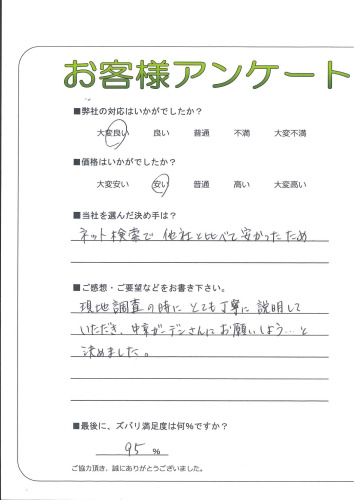 お客様アンケート
■弊社の対応はいかがでしたか？
大変良い 良い 普通 不満 大変不満
■価格はいかがでしたか？
大変安い 安い 普通 高い 大変高い
■当社を選んだ決め手は？
ネット検索で 他社と比べて安かったため
■ご感想・ご要望などをお書き下さい。
現地調査の時に とても丁寧に説明して
いただき、中京ガーデンさんにお願いしよう…と
決めました。
■最後に、ズバリ満足度は何％ですか？
95 %
ご協力頂き、誠にありがとうございました。